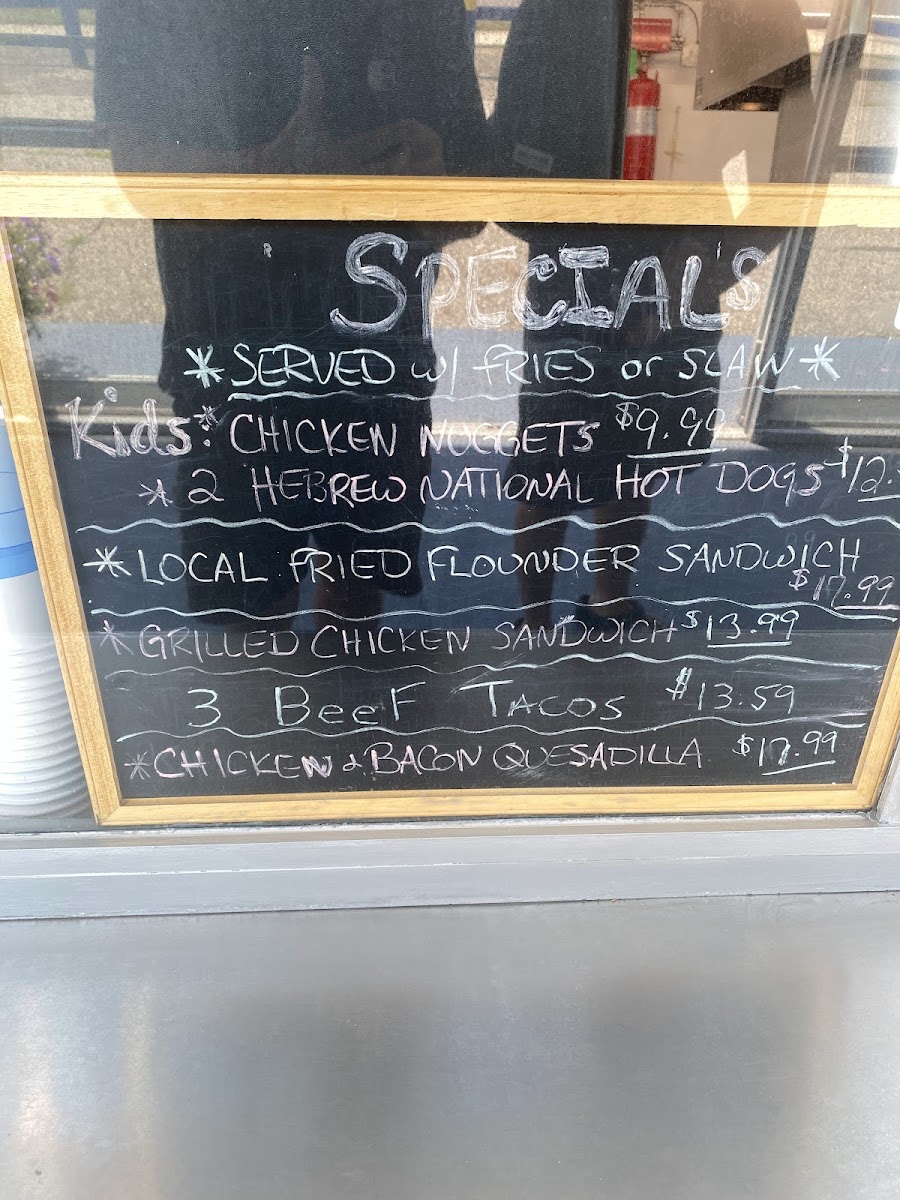 SPECIAL'S
* SERVED w/ FRIES or SLAW *
Kids: * CHICKEN NUGGETS $9.99
* 2 HEBREW NATIONAL HOT DOGS $12.
* LOCAL FRIED FLOUNDER SANDWICH
$17.99
* GRILLED CHICKEN SANDWICH $13.99
3 BeeF TACOS $13.59
* CHICKEN & BACON QUESADILLA $17.99